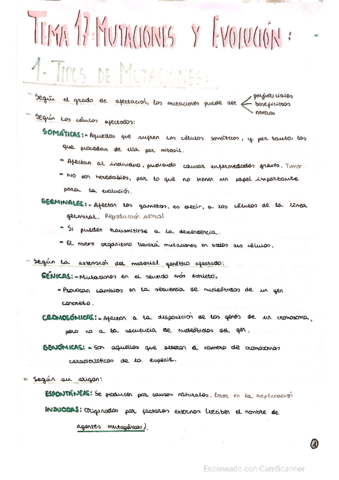 TEMA 17: MUTACIONES Y EVOLUCIÓN:
1- TIPOS DE MUTACIONES:
- Según el grado de afectación, las mutaciones puede ser
perjudiciales
beneficiosas
neutras
- Según las células afectadas:
SOMÁTICAS:- Aquellas que sufren las células somáticas, y por tanto, las
que procedan de ella por mitosis.
- Afectan al individuo, pudiendo causar enfermedades graves. Tumor
- NO son heredables, por lo que no tienen un papel importante
para la evolución.
GERMINALES:- Afectan los gametos, es decir, a las células de la línea
germinal. Reproducción sexual
- Si pueden transmitirse a la descendencia.
- El nuevo organismo tendrá mutaciones en todas sus células.
- Según la extensión del material genético afectado:
GÉNICAS:- Mutaciones en el sentido más estricto,
- Provocan cambios en la secuencia de nucleótidos de un gen
concreto.
CROMOSÓMICAS:- Afectan a la disposición de los genes de un cromosoma,
pero no a la secuencia de nucleótidos del gen.
GENÓMICAS:- Son aquellas que alteran el número de cromosomas
características de la especie.
- Según su origen:
ESPONTÁNEAS: Se producen por causas naturales. Error en la replicación
INDUCIDAS: Originadas por factores externos (reciben el nombre de
agentes mutagénicos).
Escaneado con CamScanner